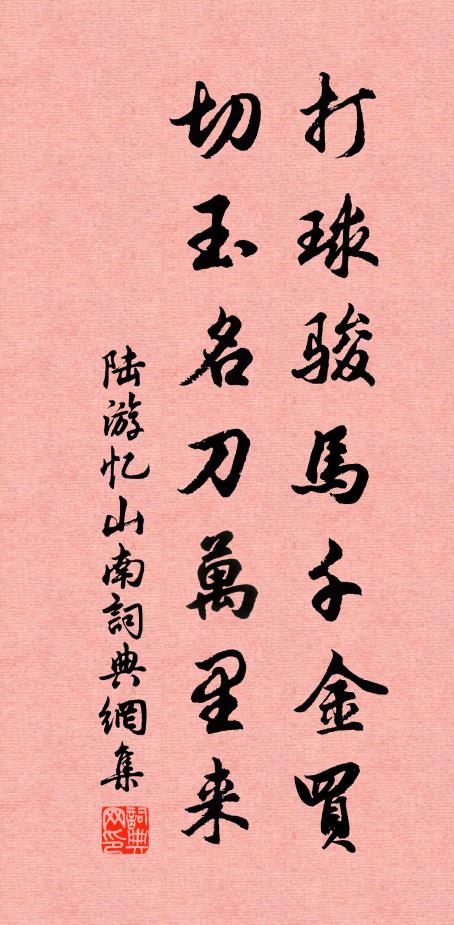 打球骏馬千金買
切玉名刀萬里来
陆游忆山南詞典網集
詞典网印